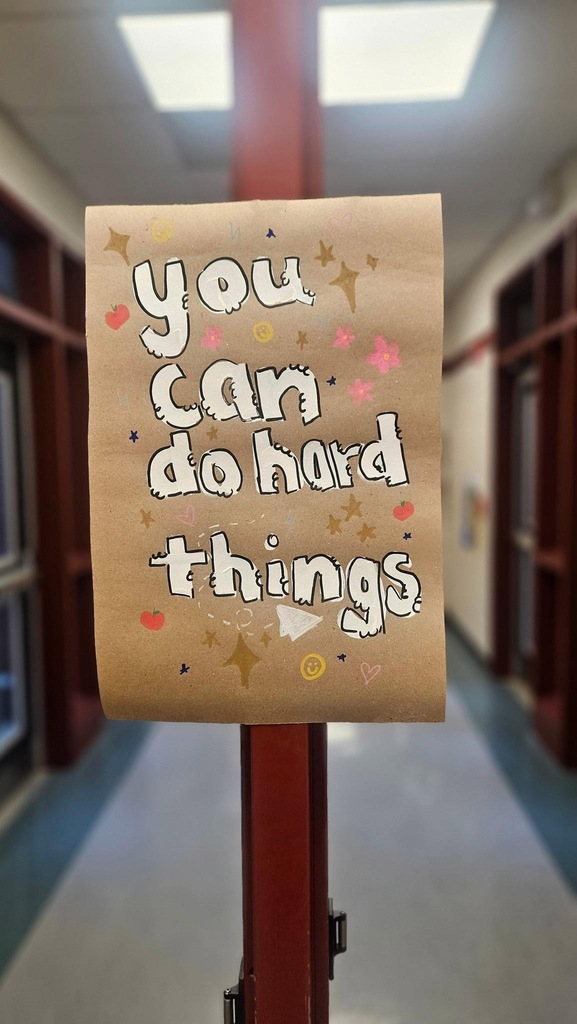 you
can
do hard
things